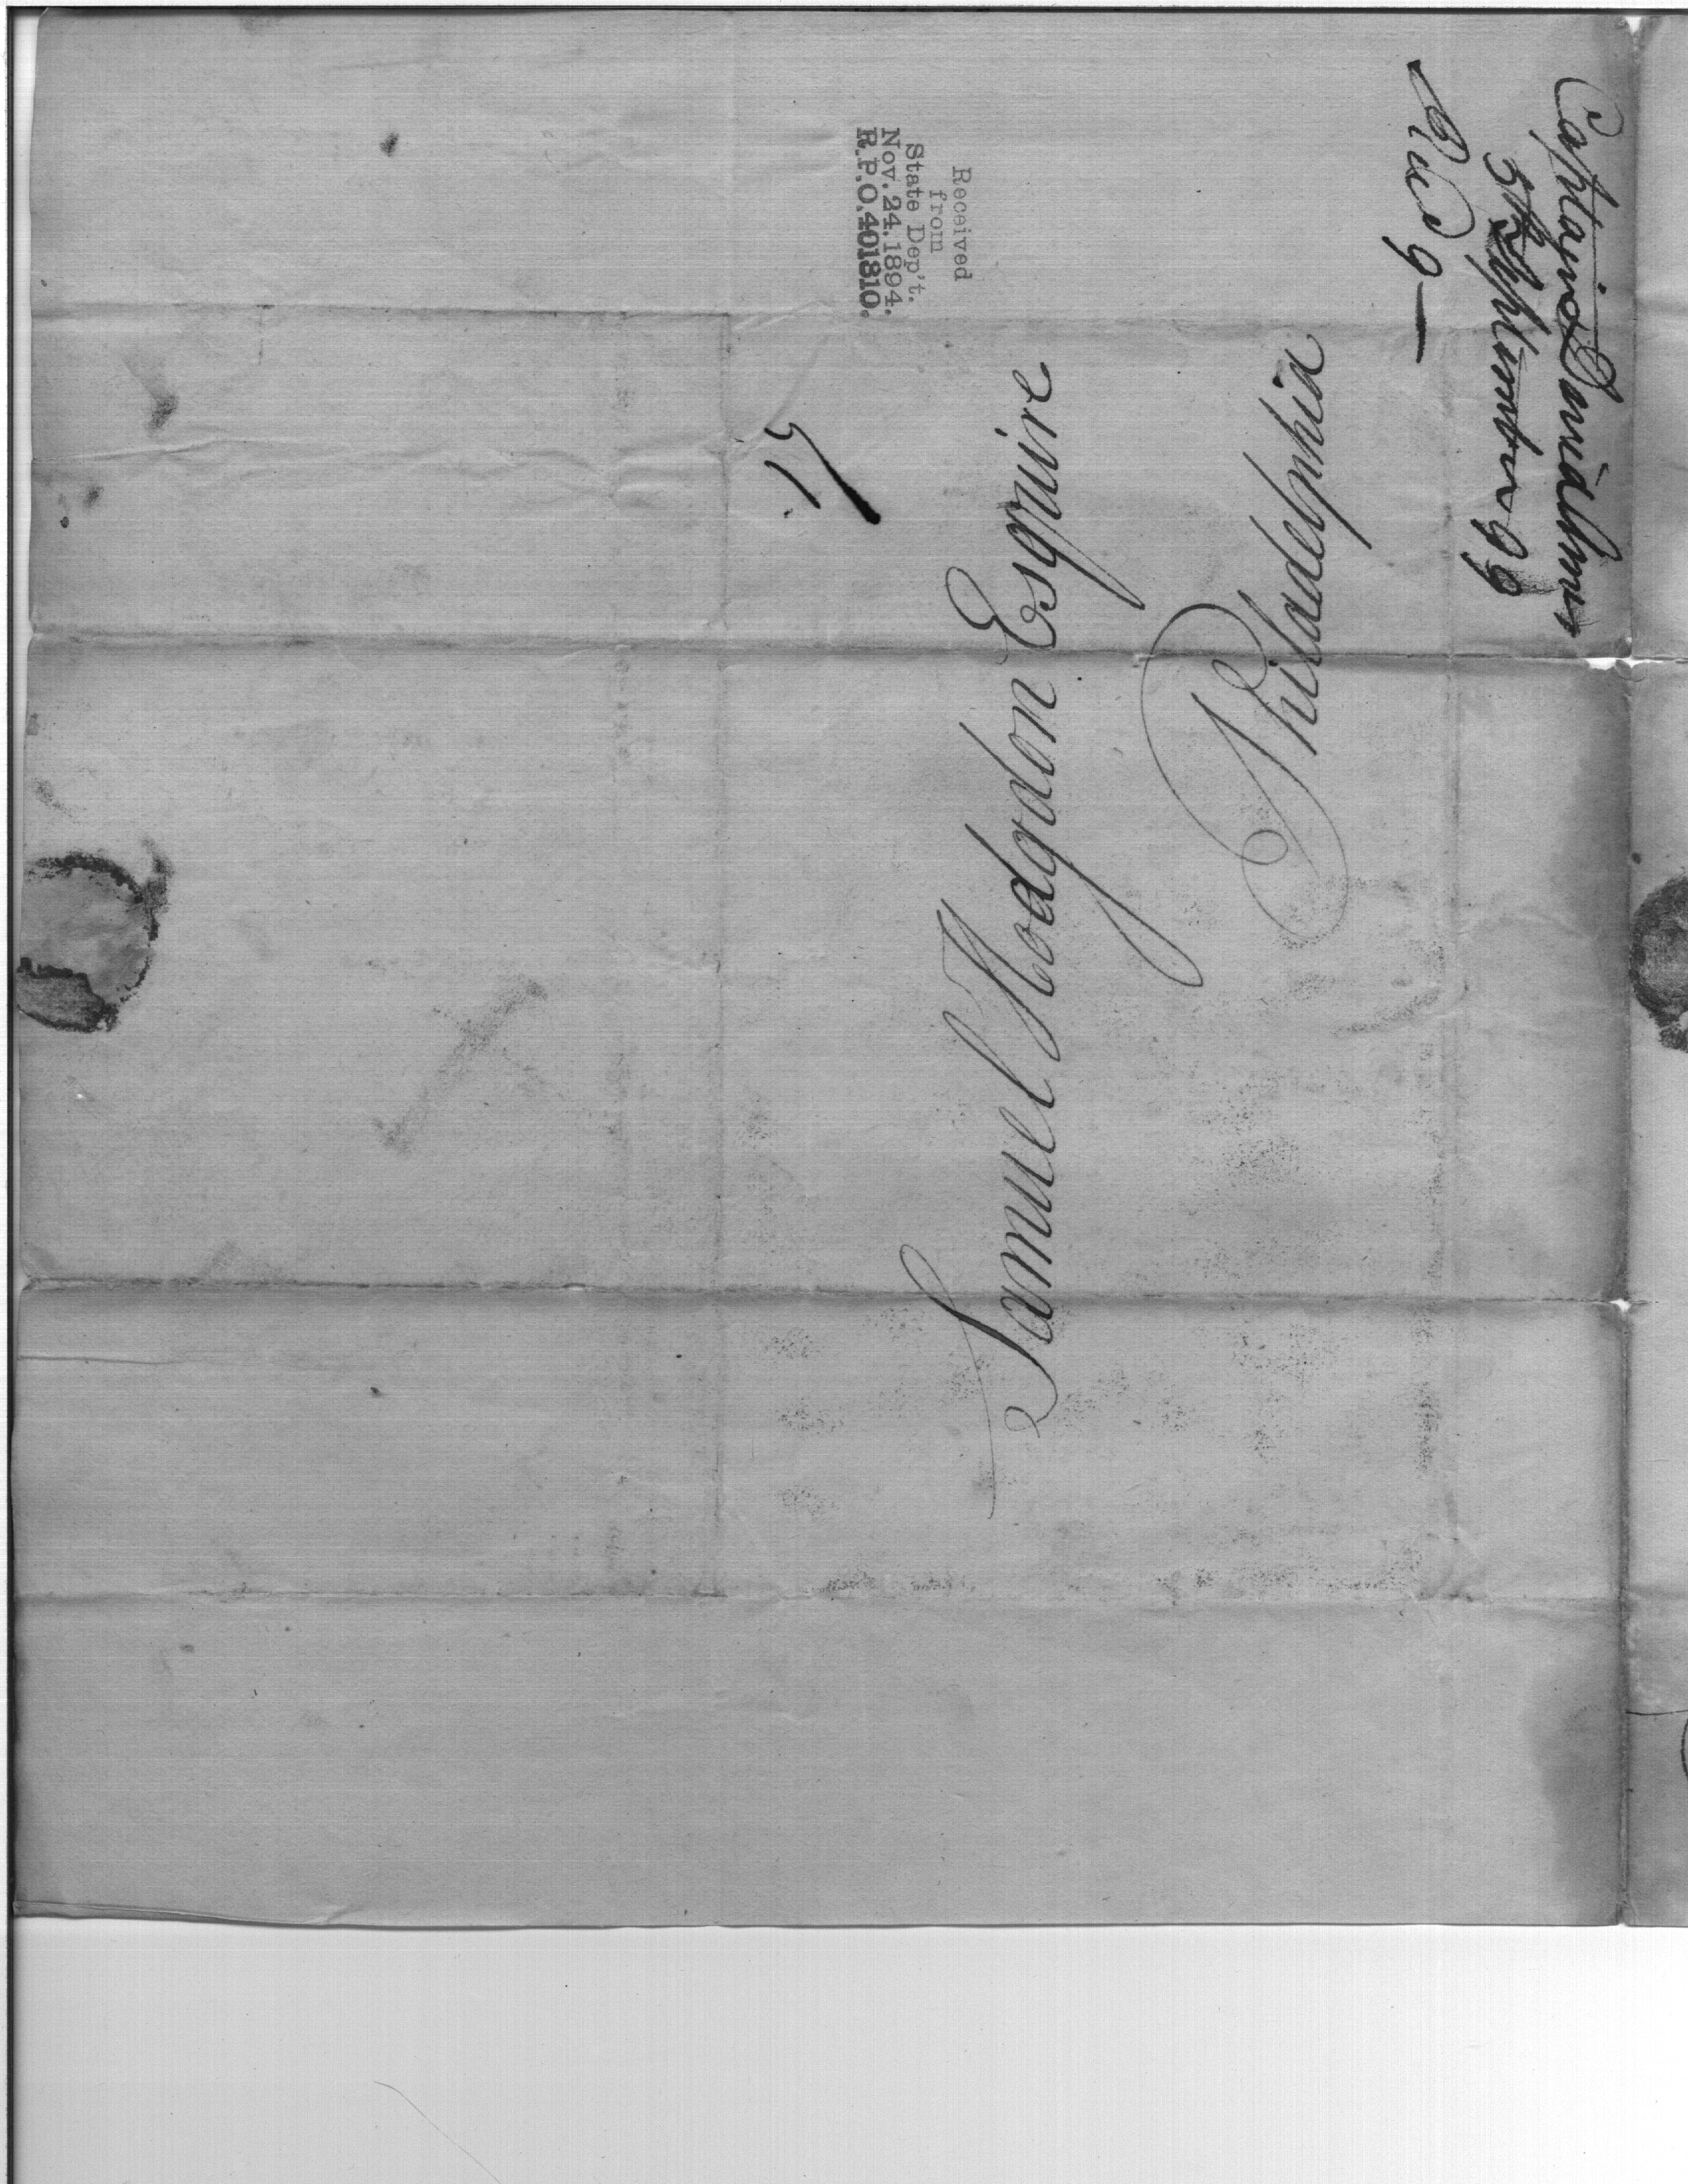 Samuel Hodgdon Esquire
Philadelphia
17
Received
from
State Dep't.
Nov. 24. 1894.
R.P.O. 401810.
Captain
5th September 99
Recd 9